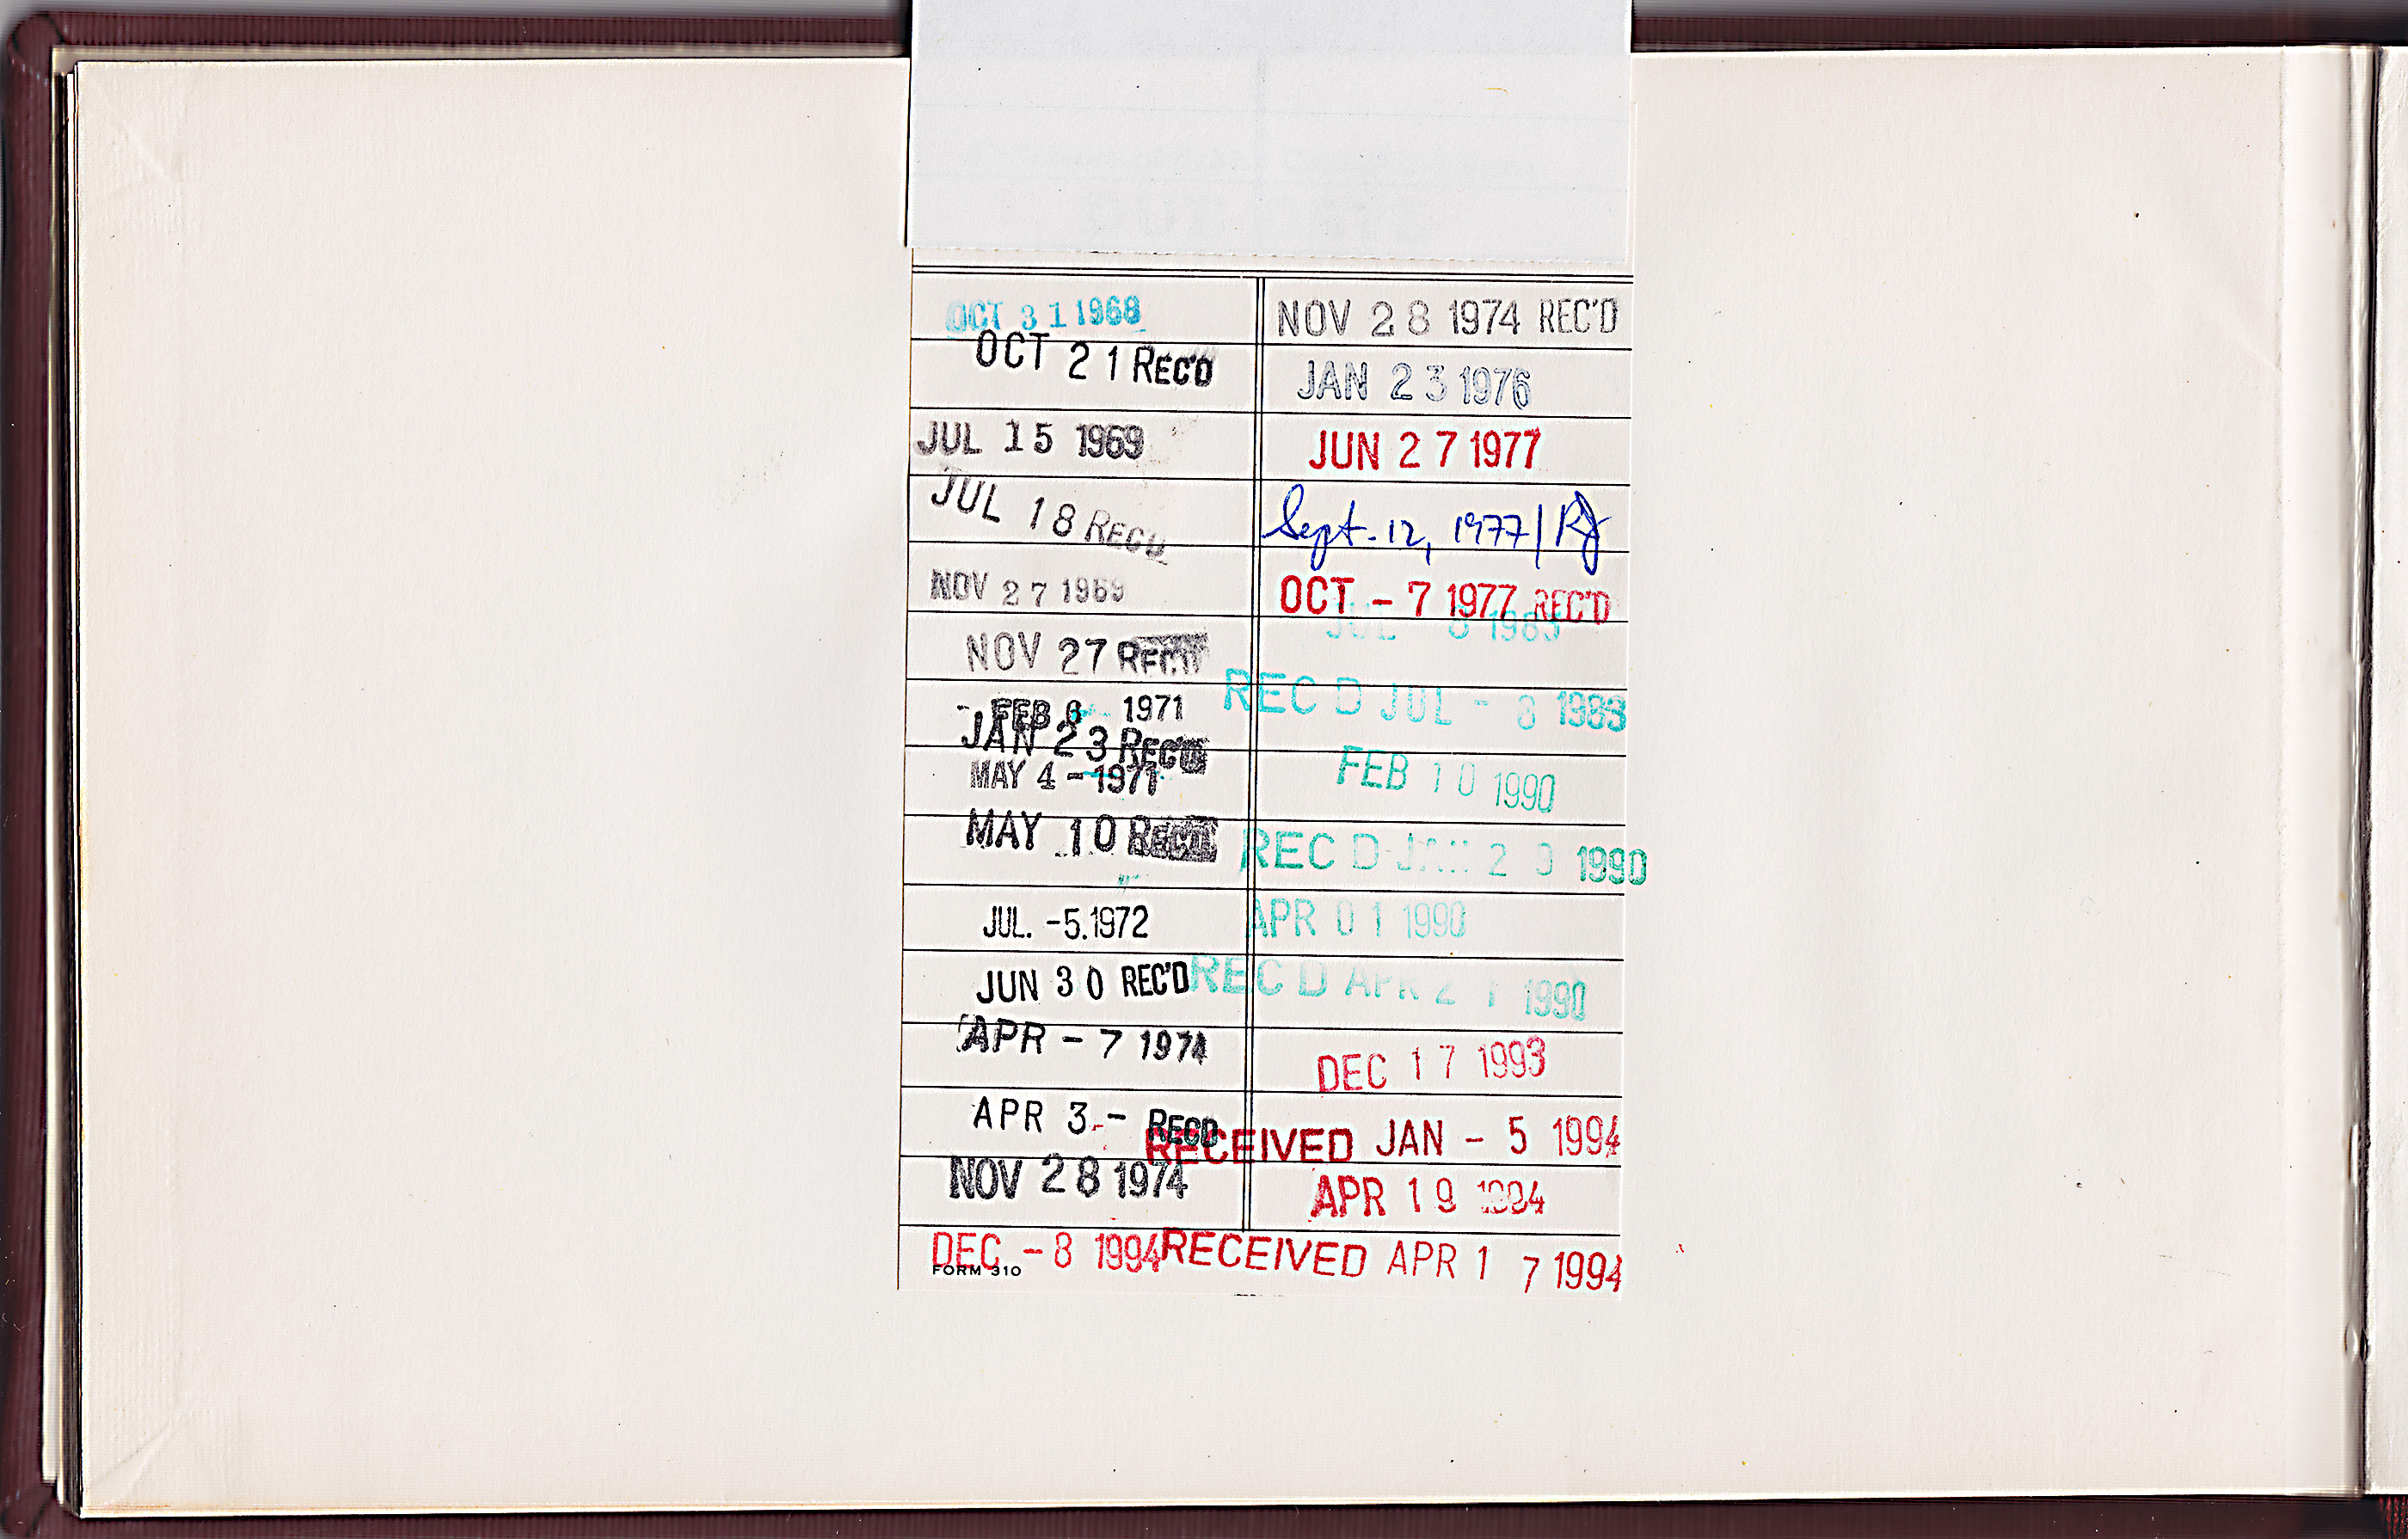 OCT 31 1968
OCT 21 REC'D
JUL 15 1969
JUL 18 REC'D
NOV 27 1969
NOV 27 REC'D
FEB 1971
JAN 23 REC'D
MAY 4 - 1971
MAY 10 REC'D
JUL. -5.1972
JUN 30 REC'D
APR - 7 1974
APR 3 - REC'D
NOV 28 1974
DEC - 8 1994
FORM 310
NOV 28 1974 REC'D
JAN 23 1976
JUN 27 1977
Sept. 12, 1977/
OCT - 7 1977 REC'D
JUL 8 1983
REC D JUL - 8 1983
FEB 10 1990
REC D JAN 2 1990
APR 01 1990
REC D APR 2 1990
DEC 17 1993
RECEIVED JAN - 5 1994
APR 19 1994
RECEIVED APR 17 1994